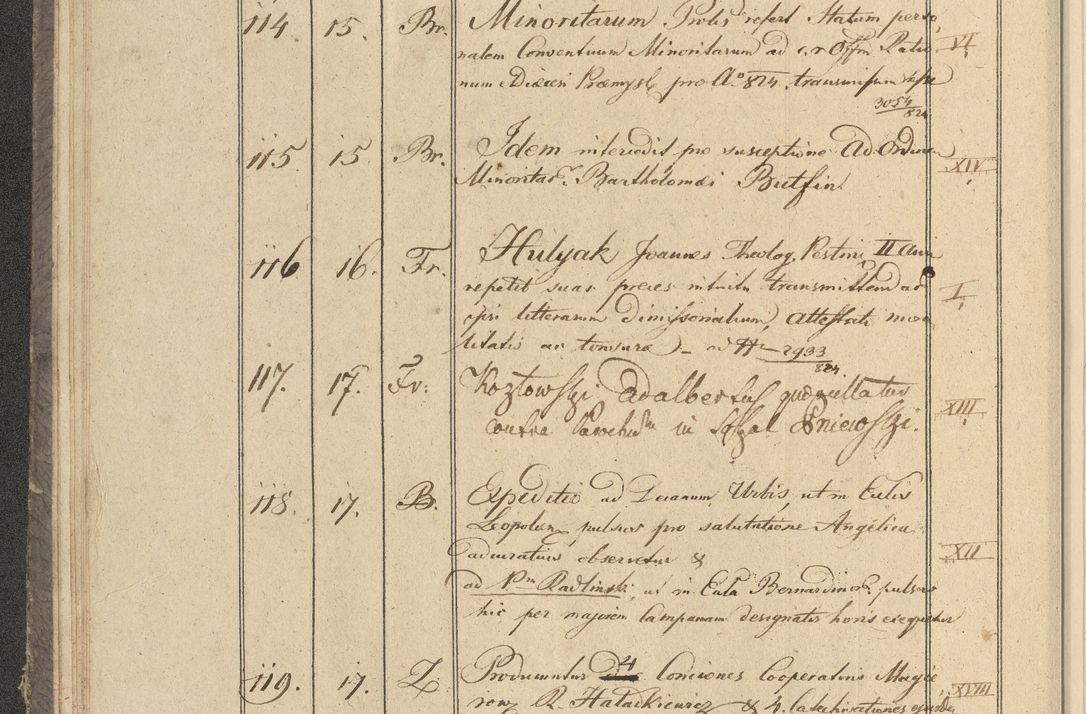 114 15. Br. Minoritarum Prolis refert Statum perso
nalem Conventuum Minoritarum ad c. r. Offm Ratio VI
num Dioecesi Præmysl pro Ao 824. transmissum esse
3054/824
115 15. Br. Idem intercedit pro susceptione ad Ordinem XIV
Minorita Bartholomæi Butfin
116 16. Fr. Hulyak Joannes Theolog. Pestini II anni
repetit suas preces intuitu transmittendar I
litterarum dimissorialium, attestati mora
litatis ac tonsura – ad N – 2933/824
117. 17. Fr. Kozłowski Adalbertus
contra Parochum in Pniewski. XIII
118. 17. B. Expeditio ad Decanum Urbis, ut in Eccliis
Leopolien pulsus pro salutatione Angelica
accuratius observetur & XII
ad Pm Radlinski, ut in Eccla Bernardinor pulsus
hic per majorem campanam designatis horis exequetur
119. 17. Z Producuntur 4 Conciones Cooperatoris Magie
row R. Hatackiewicz & 4. Catechisationes XVIII